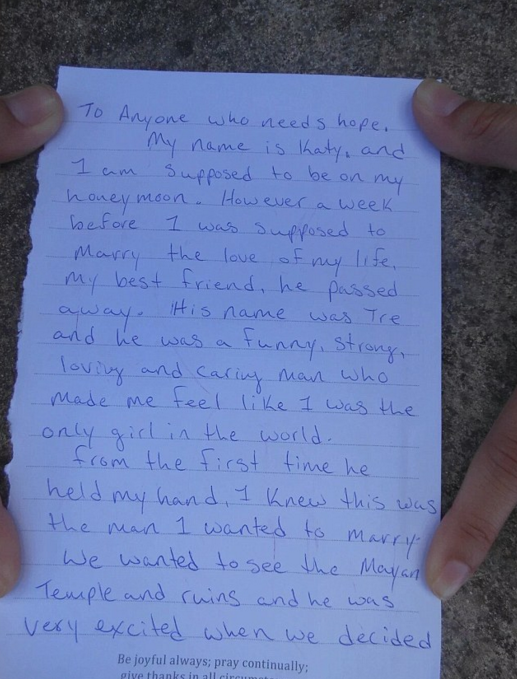 To Anyone who needs hope.
My name is Katy, and
I am supposed to be on my
honeymoon. However a week
before I was supposed to
Marry the love of my life,
my best friend, he passed
away. His name was Tre
and he was a funny, strong,
loving and caring man who
made me feel like I was the
only girl in the world.
from the first time he
held my hand, I knew this was
the man I wanted to marry.
We wanted to see the Mayan
Temple and ruins and he was
very excited when we decided
Be joyful always; pray continually;
give thanks in all